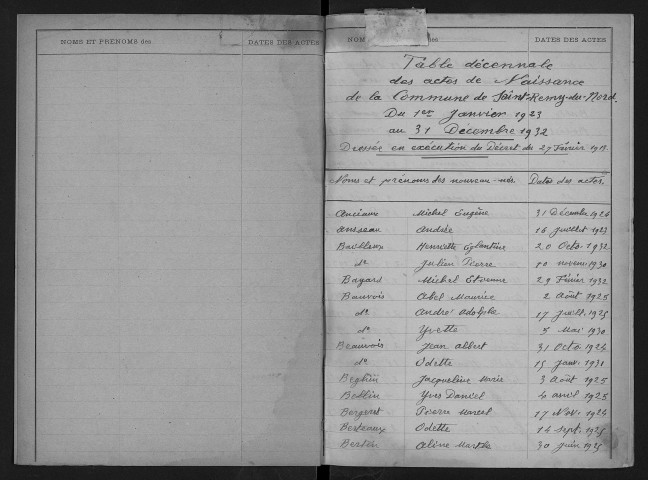 NOMS ET PRÉNOMS des DATES DES ACTES
NOM des DATES DES ACTES
Table décennale
des actes de Naissance
de la Commune de Saint-Remy-du-Nord.
Du 1er Janvier 1923
au 31 Décembre 1932
Dressée en exécution du Décret du 27 Février 1913.
Noms et prénoms des nouveau-nés Dates des actes.
Anciaux Michel Eugène 31 Décembre 1926
Ansseau Andrée 16 juillet 1923
Bailleux Henriette Eglantine 20 Octo. 1932
do Julien Pierre novem. 1930
Bayard Michel Etienne 29 Février 1932
Bauvois Abel Maurice 2 Août 1925
do André Adolphe 17 juill. 1925
do Yvette 5 Mai 1930
Beauvois Jean Albert 31 Octo. 1924
do Odette 15 janv. 1931
Beghin Jacqueline Marie 3 Août 1925
Bellin Yves Daniel 4 avril 1925
Bergeret Pierre Marcel 17 Nov. 1924
Berteaux Odette 14 sept. 1925
Bertin Aline Marthe 30 juin 1925